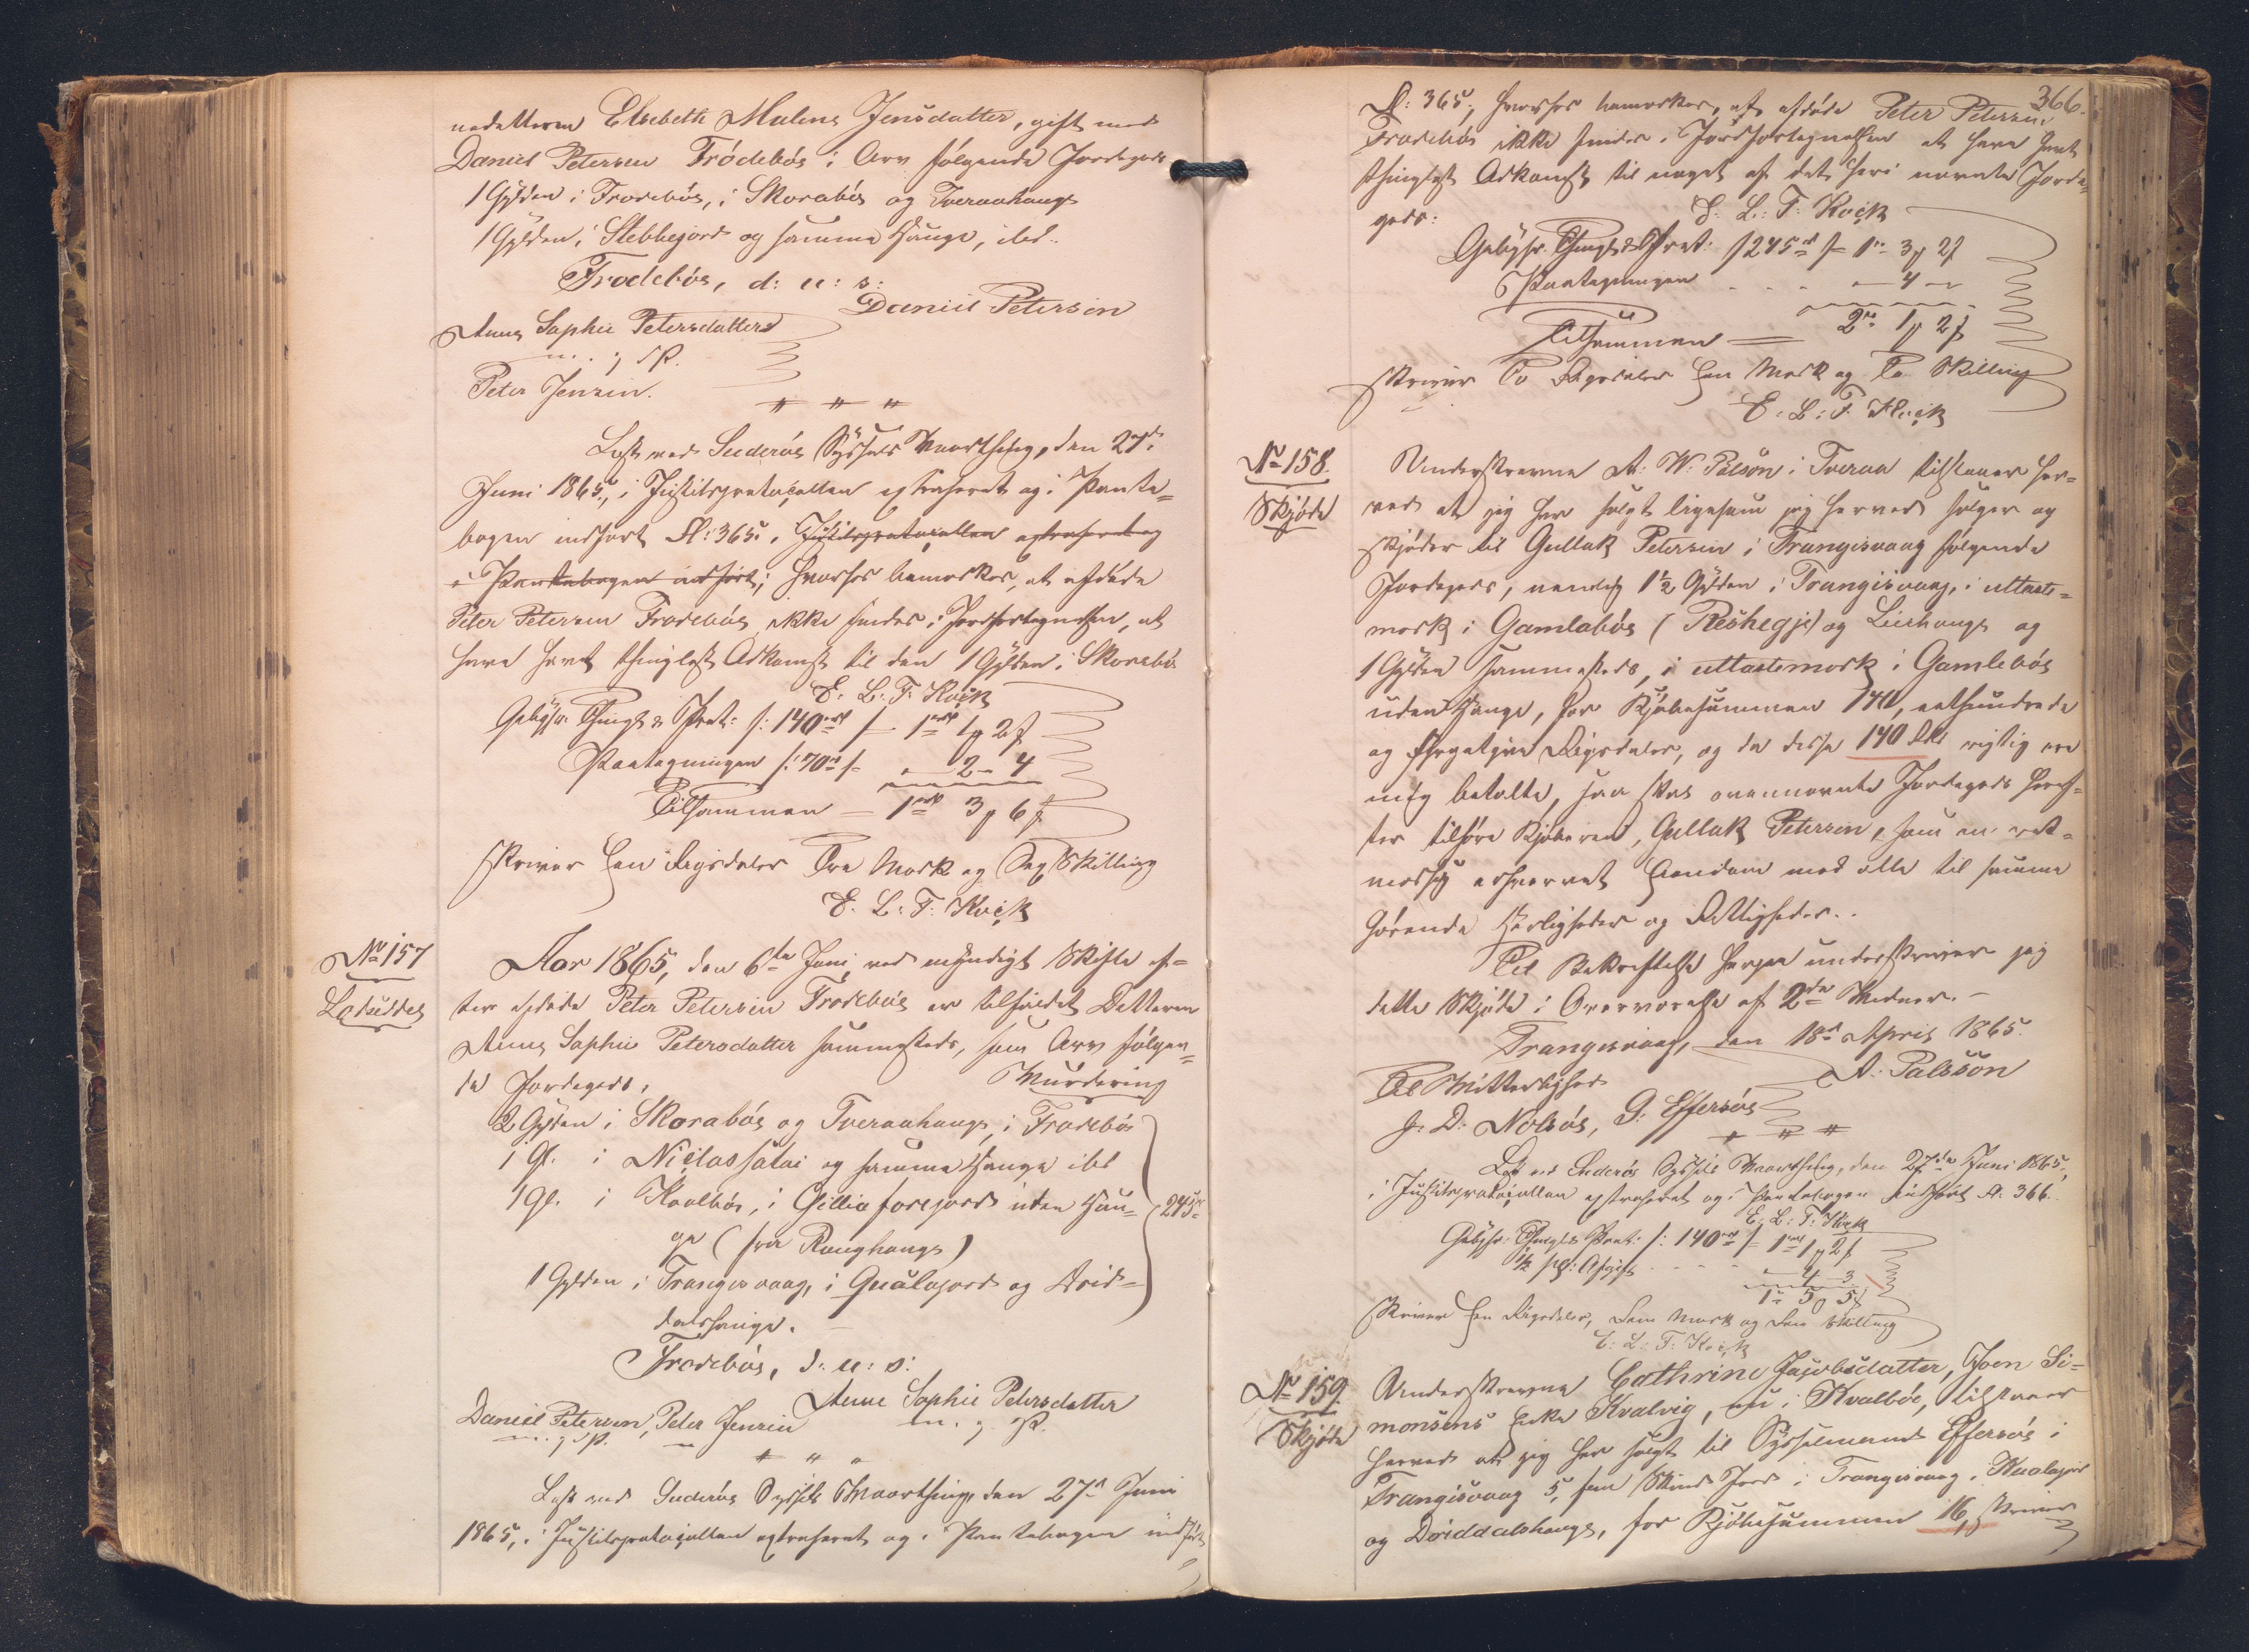 nedatteren Elsebeth Malene Jensdatter, gift med
Daniel Petersen Frödebös i Arv følgende Jordegods
1 Gylden i Frodebös, i Skorabös og Tveraahauge
1 Gylden, i Stebbegjord og samme Hauge, ibd.
Frodebös, d: u: s:
Daniel Petersen
Anna Sophie Petersdatter
m. f. P.
Peter Jensen.
Læst ved Suderös Syssels Vaarthing, den 27de
Juni 1865, i Justitsprotocollen extraheret og i Pante=
bogen indført Fl: 365. i Justitsprotocollen extraheret og
i Pantebogen indført; hvorhos bemærkes, at afdøde
Peter Petersen Frodebös ikke findes i Jordfortegnelsen, at
have havt thinglæst Adkomst til den 1 Gylden i Skorabös
E. L. F. Kock
Gebyhr. Thingl. & Prot: /: 140 rd /- 1 rd 1 μ 2 s
Paategningen /: 70 rd /- 2 - 4
Tilsammen = 1 rd 3 μ 6 s
skriver Een Rigsdaler Tre Mark og Sex Skilling
E. L. F. Kock
No 157
Lodseddel
Aar 1865, den 6te Juni, ved myndigt Skifte ef=
ter afdøde Peter Petersen Frodebös er tilfaldet Datteren
Anna Sophie Petersdatter sammesteds, som Arv følgen=
de Jordegods,
Vurdering
2 Gylden i Skorabös og Tveraahauge, i Frodebös
1 Gl. i Niclassatai og samme Hauge ibd
1 Gl. i Kvalbös, i Gilliaforejord uden Hau=
ge (fra Roughauge)
245 rd
1 Gylden i Trangisvaag, i Qualajord og Dvid=
dalshauge.
Frodebös, d: u: s:
Anne Sophie Petersdatter
m. f. P.
Daniel Petersen, Peter Jensen
m. f. P.
Læst ved Suderös Syssels Vaarthing, den 27de Juni
1865, i Justitsprotocollen extraheret og i Pantebogen indført
366.
Fl: 365, hvorhos bemærkes, at afdøde Peter Petersen
Frodebös ikke findes i Jordfortegnelsen at have havt
thinglæst Adkomst til noget af det heri nævnte Jorde=
gods:
E. L. F. Kock
Gebyhr. Thingl. & Prot. /: 245 rd /- 1 rd 3 μ 2 s
Paategningen . . . - 4 -
Tilsammen = 2 rd 1 μ 2 s
skriver To Rigsdaler Een Mark og To Skilling
E. L. F. Kock
No 158.
Skjøde
Underskrevne A. W. Palsön i Tveraa tilstaaer her=
ved at jeg har solgt ligesom jeg herved sælger og
skjøder til Gullak Petersen i Trangisvaag følgende
Jordegods, nemlig 1½ Gylden i Trangisvaag, i uttaste=
mork i Gamlabös (Reshegje) og Liehauge og
1 Gylden sammesteds, i uttastemork i Gamlebös
uden Hauge, for Kjøbesummen 140, eethundrede
og fyrgetyve Rigsdaler, og da disse 140 Rdl rigtig ere
mig betalte, saa skal ovennævnte Jordegods heref=
ter tilhøre Kjøberen, Gullak Petersen, som en ret=
mæssig erhvervet Eiendom med alle til samme
hørende Herligheder og Rettigheder.
Til Bekræftelse herpaa underskriver jeg
dette Skjøde i Overværelse af 2de Vidner. -
Trangisvaag, den 18de April 1865.
A. Palsson
Til Vitterlighed
J. D. Nolsös, G. Effersös
Læst ved Suderös Syssels Vaarthing, den 27de Juni 1865,
i Justitsprotocollen extraheret og i Pantebogen indført Fl. 366.
E. L. F. Kock
Gebyhr: Thingl. & Prot: /: 140 rd /- 1 rd 1 μ 2 s
½ pCt: Afgift . . . - 4 - 3
1 rd 5 μ 5 s
skriver Een Rigsdaler, Fem Mark og Fem Skilling
E. L. F. Kock
No 159.
Skjøde
Underskrevne Cathrine Jacobsdatter, Joen Si=
monsens Enke Kvalvig, nu i Kvalböe, tilstaaer
herved at jeg har solgt til Sysselmand Effersös i
Trangisvaag 5, fem Skind Jord i Trangisvaag, i Kualajord
og Dviddalshauge, for Kjøbesummen 16, skriver